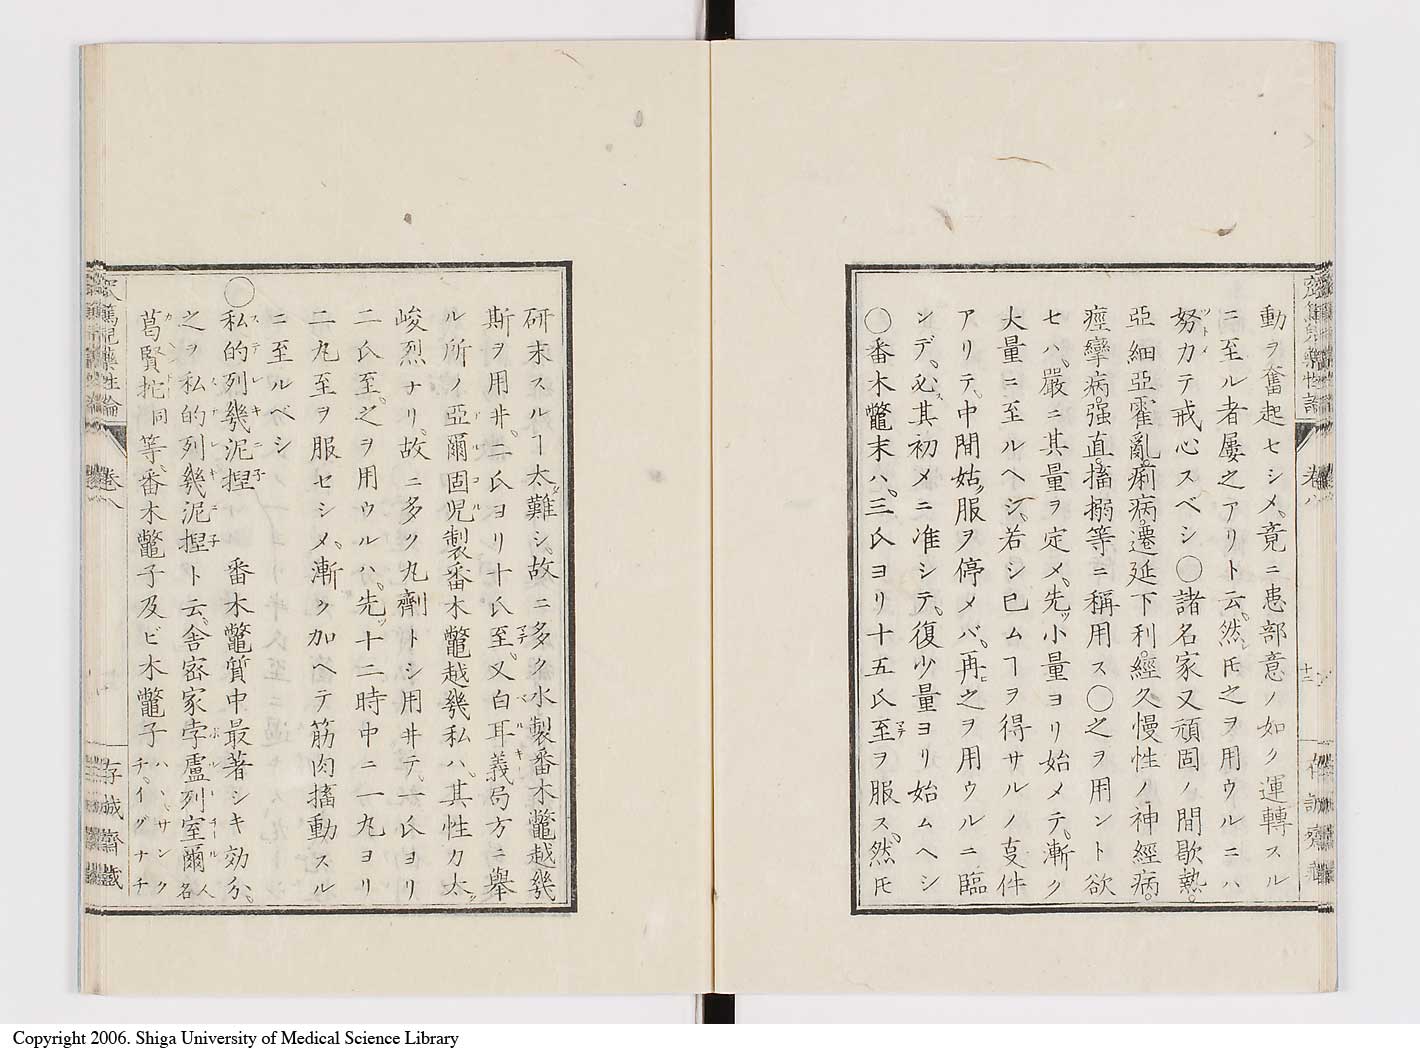 動ヲ奮起セシメ、竟ニ患部意ノ如ク運轉スル
ニ至ル者屢之アリト云、然𪜈之ヲ用ウルニハ
努力テ戒心スベシ〇諸名家又頑固ノ間歇熱。
亞細亞霍亂。痢病。遷延下利。經久慢性ノ神經病。
痙攣病。强直。搐搦等ニ稱用ス〇之ヲ用ント欲
セハ、嚴ニ其量ヲ定メ、先ツ小量ヨリ始メテ、漸ク
大量ニ至ルヘシ、若シ已ムヿヲ得サルノ㕝件
アリテ、中間姑ク服ヲ停メバ、再ヒ之ヲ用ウルニ臨
ンデ、必ス其初メニ准シテ、復少量ヨリ始ムヘシ
〇番木鼈末ハ、三氏ヨリ十五氏至ヲ服ス、然𪜈
研末スルヿ太タ難シ、故ニ多ク水製番木鼈越幾
斯ヲ用井、二氏ヨリ十氏至、又白耳義局方ニ擧
ル所ノ亞爾固児製番木鼈越幾私ハ、其性力太タ
峻烈ナリ、故ニ多ク丸劑トシ用井テ、一氏ヨリ
二氏至、之ヲ用ウルハ、先ツ十二時中ニ一丸ヨリ
二丸至ヲ服セシメ、漸ク加ヘテ筋肉搐動スル
ニ至ルベシ
〇私的列幾泥捏　番木鼈質中最著シキ効分、
之ヲ私的列幾泥捏ト云、舎密家孛盧列室爾人名
葛賢挓同等、番木鼈子及ビ木鼈子ハハ、サンクチ、イグナチ
窊篤児藥性論
卷八
存誠齋藏
卷八
十二